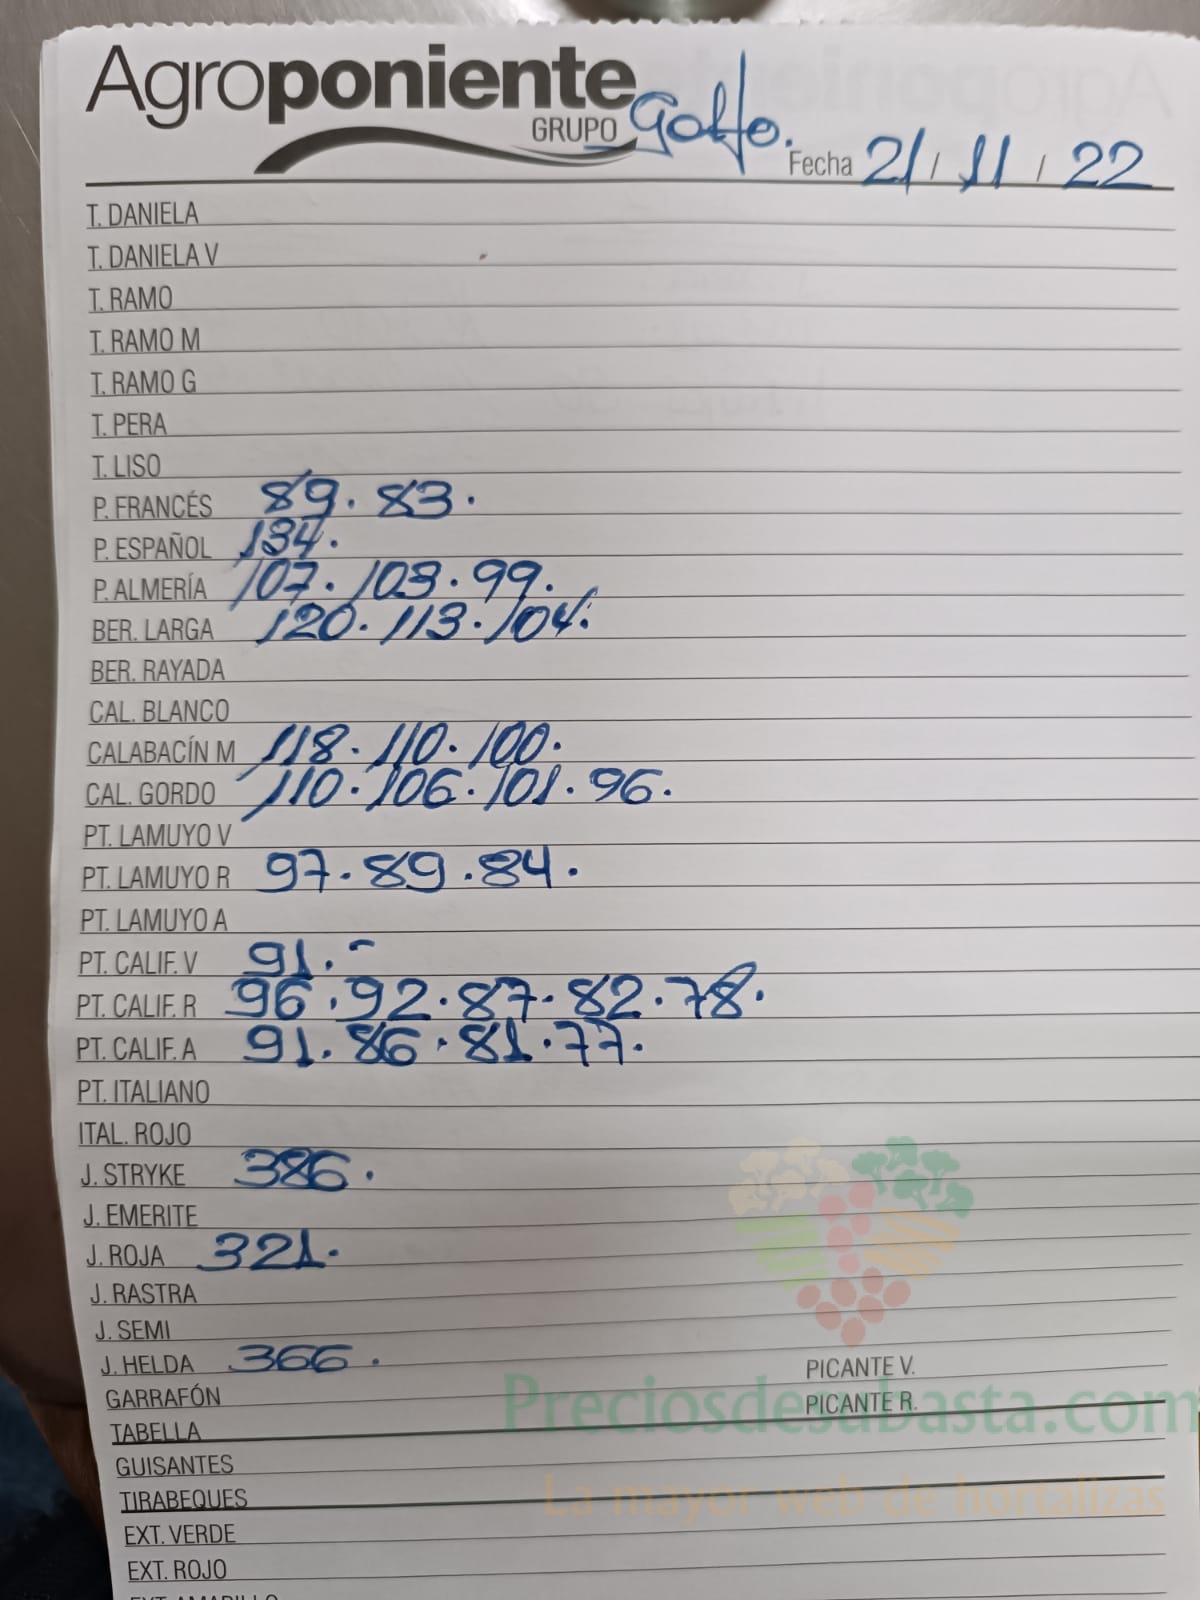 Agroponiente
GRUPO
Golfo.
Fecha 21 / 11 / 22
T. DANIELA
T. DANIELA V
T. RAMO
T. RAMO M
T. RAMO G
T. PERA
T. LISO
P. FRANCÉS 89. 83.
P. ESPAÑOL 134.
P. ALMERÍA 107. 103. 99.
BER. LARGA 120. 113. 104.
BER. RAYADA
CAL. BLANCO
CALABACÍN M 118. 110. 100.
CAL. GORDO 110. 106. 101. 96.
PT. LAMUYO V
PT. LAMUYO R 97. 89. 84.
PT. LAMUYO A
PT. CALIF. V 91. -
PT. CALIF. R 96. 92. 87. 82. 78.
PT. CALIF. A 91. 86. 81. 77.
PT. ITALIANO
ITAL. ROJO
J. STRYKE 386.
J. EMERITE
J. ROJA 321.
J. RASTRA
J. SEMI
J. HELDA 366.
PICANTE V.
GARRAFÓN
PICANTE R.
Preciosdesubasta.com
TABELLA
GUISANTES
La mayor web de hortalizas
TIRABEQUES
EXT. VERDE
EXT. ROJO
EXT. AMARILLO